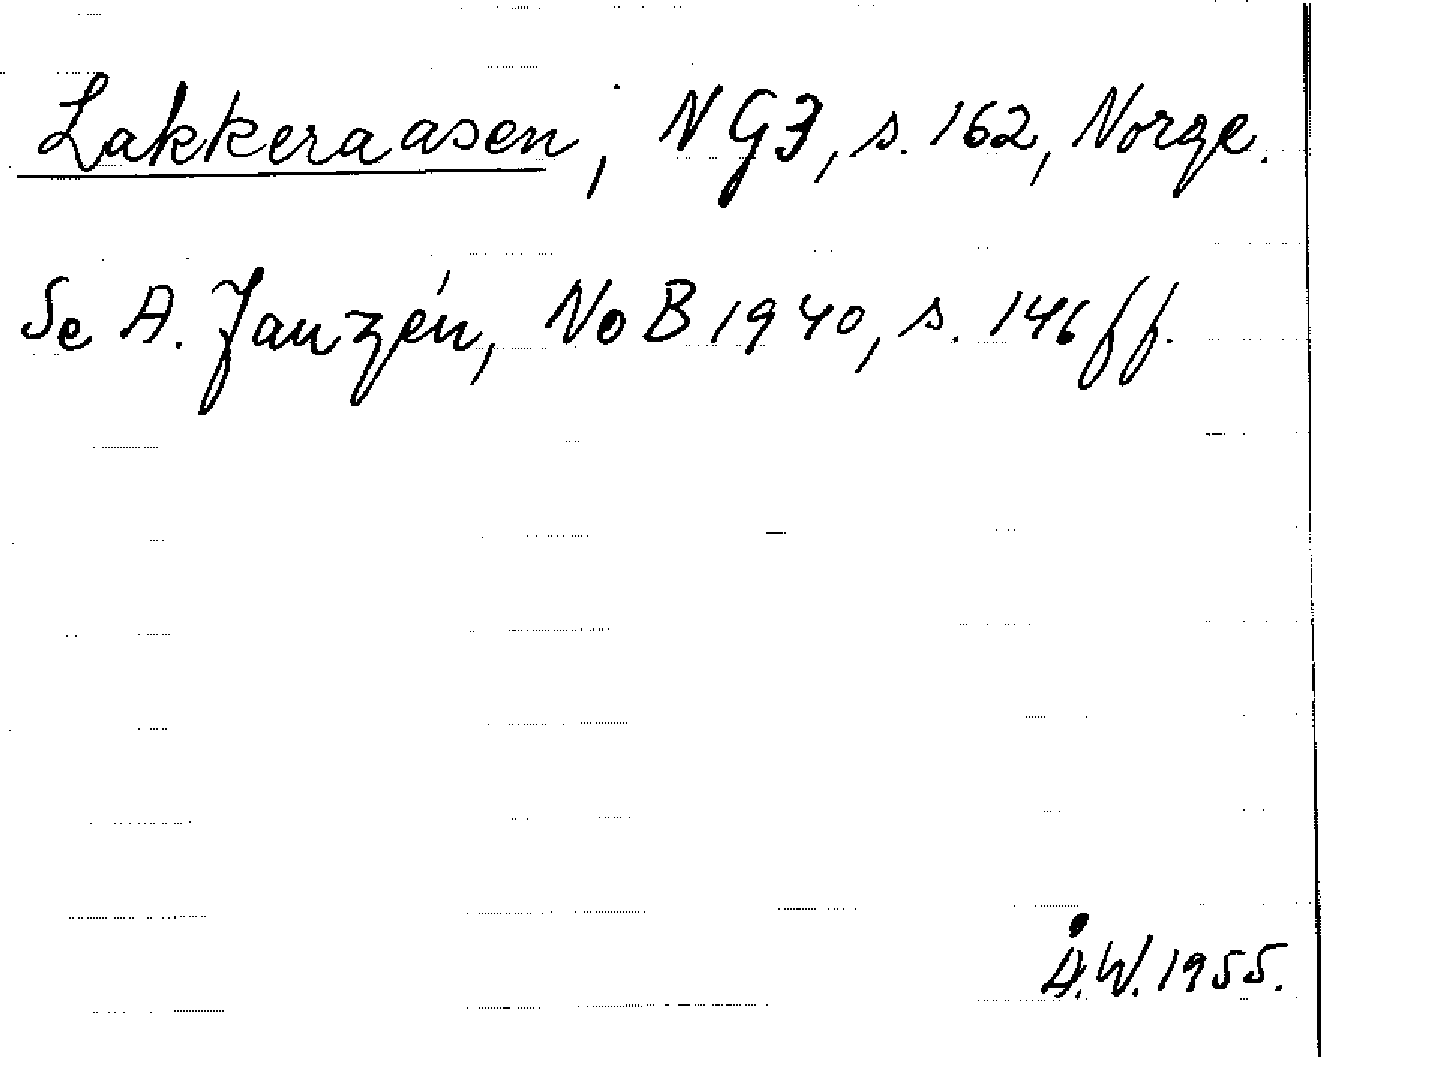 Lakkeraasen, NG3, s. 162, Norge.
Se A. Janzén, NoB 1940, s. 146 ff.
Å.W. 1955.